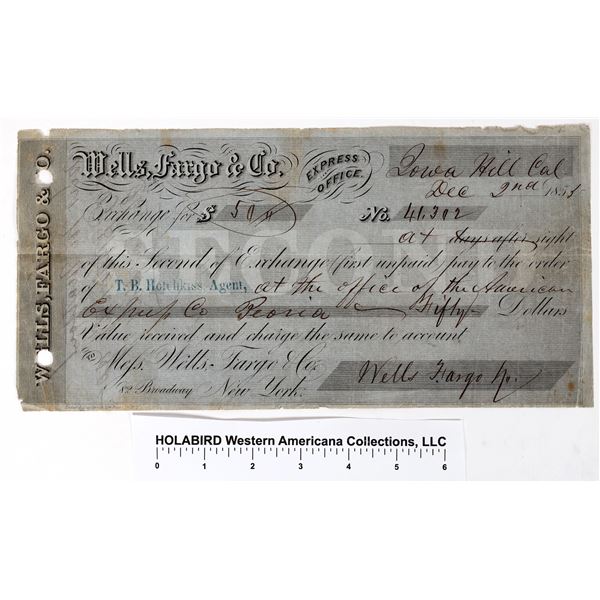 WELLS, FARGO & CO.
Wells, Fargo & Co. EXPRESS OFFICE.
Iowa Hill Cal
Dec 2nd 185
Exchange for $ 50 No. 41,302
At days after sight
SECOND
of this Second of Exchange (first unpaid) pay to the order
of T. B. Hotchkiss, Agent, at the office of the American
Exp Co Peoria Fifty Dollars
Value received and charge the same to account
To Mess. Wells, Fargo & Co.
82 Broadway New York.
Wells Fargo
HOLABIRD Western Americana Collections, LLC
0 1 2 3 4 5 6